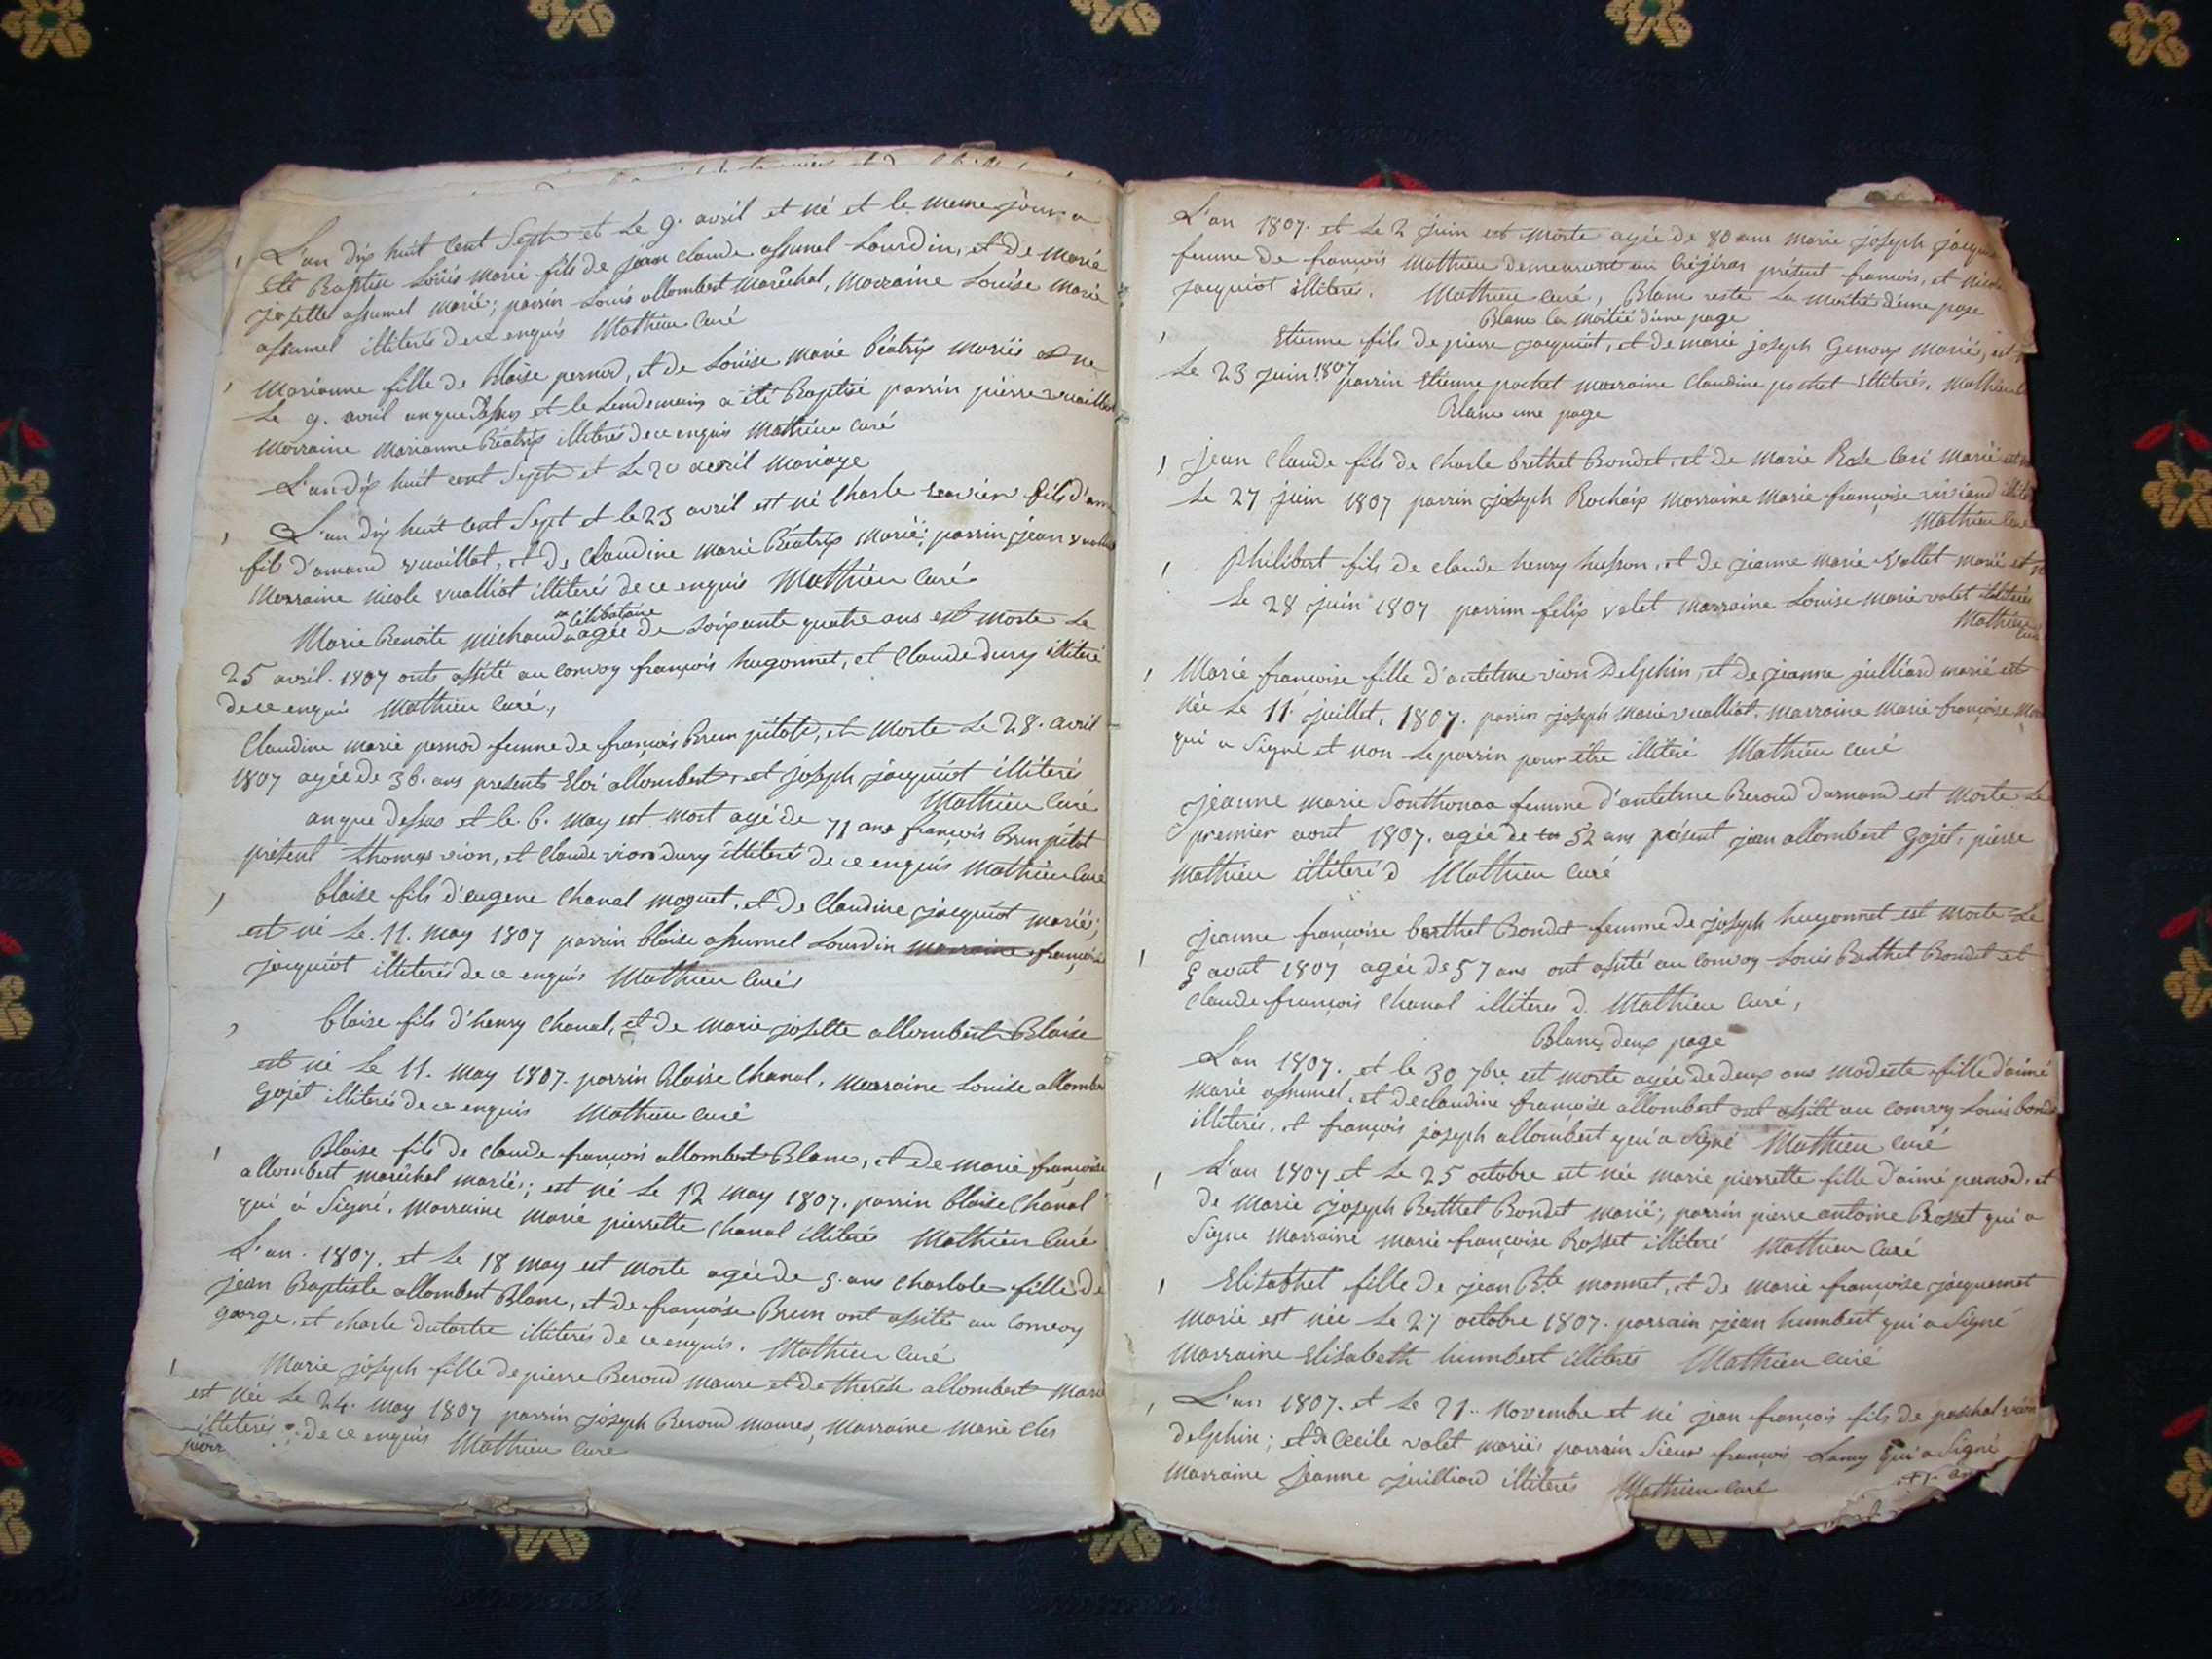 L'an dix huit cent Sept et Le 9. avril et né et le meme jour a
été Baptise Loüis marie fils de jean claude assumel Lourdin, et de marie
josette assumel marié; parrin Louis allombert maréchal, marraine Louise marie
assumel illiterés de ce enquis Mathieu Curé
Marianne fille de Blaise pernod, et de Loüise marie Béatrix mariés est né
Le 9. avril an que dessus et le Lendemain a été Baptisé parrin pierre vuaillat
marraine marianne Béatrix illiterés de ce enquis Mathieu Curé
L'an dix huit cent Sept et Le 20 avril mariage
L'an dix huit cent Sept et le 23 avril est né Charle xavier fils d'am
fils d'amand vuaillat, et de Claudine marie Béatrix marié; parrin jean vuallia
Marraine Nicole vualliat illiterés de ce enquis Mathieu Curé
celibataire
Marie Benoite michaud agée de Soixante quatre ans est morte Le
25 avril. 1807 onts assité au convoy françois hugonnet, et Claude dury illiteré
de ce enquis Mathieu Curé,
Claudine marie pernod femme de françois Brun pitod, et morte Le 28. avril
1807 agée de 36. ans presents Eloi allombert, et joseph jacquiot illiterés
Mathieu Curé
an que dessus et le 6. may est mort agé de 71 ans françois Brun pitot
présent thomas vion, et Claude vion dury illiteré de ce enquis Mathieu Curé
blaise fils d'eugene Chanal moguet, et de Claudine jacquiot mariés;
est né Le. 11. may 1807 parrin blaise assumel Lourdin marraine françoise
jacquiot illiterés de ce enquis Mathieu Curé
blaise fils d'henry Chanal, et de marie josette allombert Blaise
est né Le 11. may 1807. parrin Blaise Chanal. marraine Louise allomber
Gojet illiterés de ce enquis Mathieu Curé
Blaise fils de Claude françois allombert Blanc, et de marie françoise
allombert maréchal mariés; est né Le 12 may 1807. parrin blaise Chanal
qui à Signé, marraine marie pierrette Chanal illiteré Mathieu Curé
L'an. 1807. et Le 18 may est morte agée de 9. ans Charlote fille de
jean Baptiste allombert Blanc, et de françoise Brun ont assités au convoy
george, et charle dutartre illiterés de ce enquis. Mathieu Curé
Marie joseph fille de pierre Beroud maure et de therése allombert mari
est née Le 24. may 1807 parrin joseph Beroud maures, marraine marie Cles
illiterés de ce enquis Mathieu Curé
L'an 1807. et Le 2 juin est morte agée de 80 ans marie joseph jacqui
femme de françois Mathieu demeurant au Crégiras présent francois, et Nicole
jacquiot illiterés. Mathieu Curé, Blanc reste La moitié d'une page
Blanc la moitié d'une page
Etienne fils de pierre jacquiot, et de marie joseph Genoux mariés, est
Le 23 juin 1807 parrin Etienne pochet marraine Claudine pochet illiterés. Mathieu
Blanc une page
jean Claude fils de Charle brethet Bondet, et de Marie Rose Cari marié est
Le 27 juin 1807 parrin joseph Rochaix marraine Marie françoise viviand illite
Mathieu Curé
Philibert fils de claude henry husson, et de jeanne marie Vallet marié et
Le 28 juin 1807 parrim felix valet marraine Louise marie valet illiterés
Mathieu Curé
Marie francoise fille d'antelme vion Delphin, et de jeanne julliard marié est
née Le 11 juillet, 1807. parrin joseph marie vualliat. marraine marie françoise
qui a Signé et non Le parrin pour être illiteré Mathieu Curé
jeanne marie Southonax femme d'antelme Beroud Darmand est morte Le
premier aout 1807. agée de 52 ans présent jean allombert Gojet, pierre
Mathieu illiteré d Mathieu Curé
jeanne françoise berthet Bondet femme de joseph hugonnet est morte Le
9 aout 1807 agée de 57 ans ont assité au convoy Louis Berthet Bondet et
Claude françois Chanal illiteres d. Mathieu Curé,
Blanc deux page
L'an 1807. et le 30 7bre est morte agée de deux ans modeste fille d'aimé
marie assumel, et de claudine françoise allombert ont assité au convoy Louis bond
illiterés, et françois joseph allombert qui a Signé Mathieu Curé
L'an 1807 et Le 25 octobre est née marie pierrette fille d'aimé pernod, et
de Marie joseph Berthet Bondet marié; parrin pierre antoine Rosset qui a
Signe marraine marie françoise Rosset illiteré Mathieu Curé
Elisabhet fille de jean Bte monnet, et de marie francoise jacquemet
marié est née Le 27 octobre 1807. parrain jean humbert qui a Signé
Marraine Elisabeth humbert illiterés Mathieu Curé
L'an 1807. et Le 21. Novembre et né jean françois fils de paschal vion
delphin; et de Cecile valet mariés parrain Sieur françois Lamy qui a Signé
Marraine Jeanne juilliard illiterés Mathieu Curé